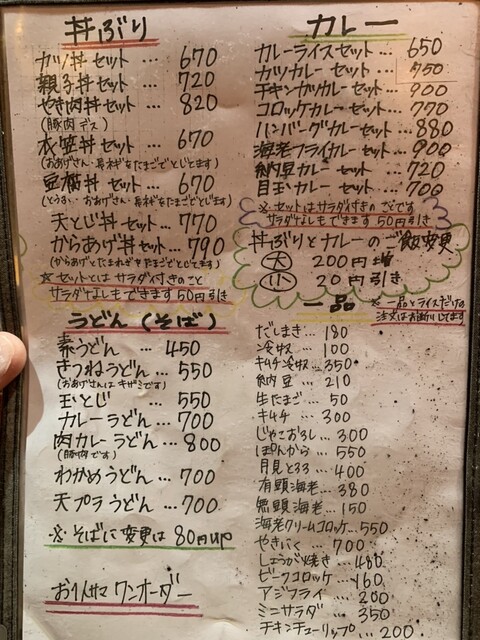 丼ぶり
カツ丼セット … 670
親子丼セット … 720
やき肉丼セット … 820
(豚肉デス)
衣笠丼セット … 670
(おあげさん・長ネギをたまごでとじてます)
豆腐丼セット … 670
(とうふ・おあげさん・長ネギをたまごでとじてます)
天とじ丼セット … 770
からあげ丼セット … 790
(からあげとたまねぎをたまごでとじてます)
※セットとは サラダ付きのこと
サラダなしもできます 50円引き
うどん (そば)
素うどん … 450
きつねうどん … 550
(おあげさんは キザミです)
玉とじ … 550
カレーうどん … 700
肉カレーうどん … 800
(豚肉です)
わかめうどん … 700
天プラうどん … 700
※ そばに変更は 80円up
お1人サマ ワンオーダー
カレー
カレーライスセット … 650
カツカレーセット … 750
チキンカツカレーセット … 900
コロッケカレーセット … 770
ハンバーグカレーセット … 880
海老フライカレーセット … 900
納豆カレーセット … 720
目玉カレーセット … 700
※セットはサラダ付きのことです
サラダなしもできます 50円引き
丼ぶりとカレーのご飯変更
大 200円増
小 20円引き
一品 ※ 一品とライスだけの
注文はお断りしてます
だしまき … 180
冷奴 … 100
キムチ冷奴 … 350
納豆 … 210
生たまご … 50
キムチ … 300
じゃこおろし … 300
ぽんから … 550
月見とろろ … 400
有頭海老 … 380
無頭海老 … 150
海老クリームコロッケ … 550
やきにく … 700
しょうが焼き … 480
ビーフコロッケ … 160
アジフライ … 200
ミニサラダ … 350
チキンチューリップ … 200